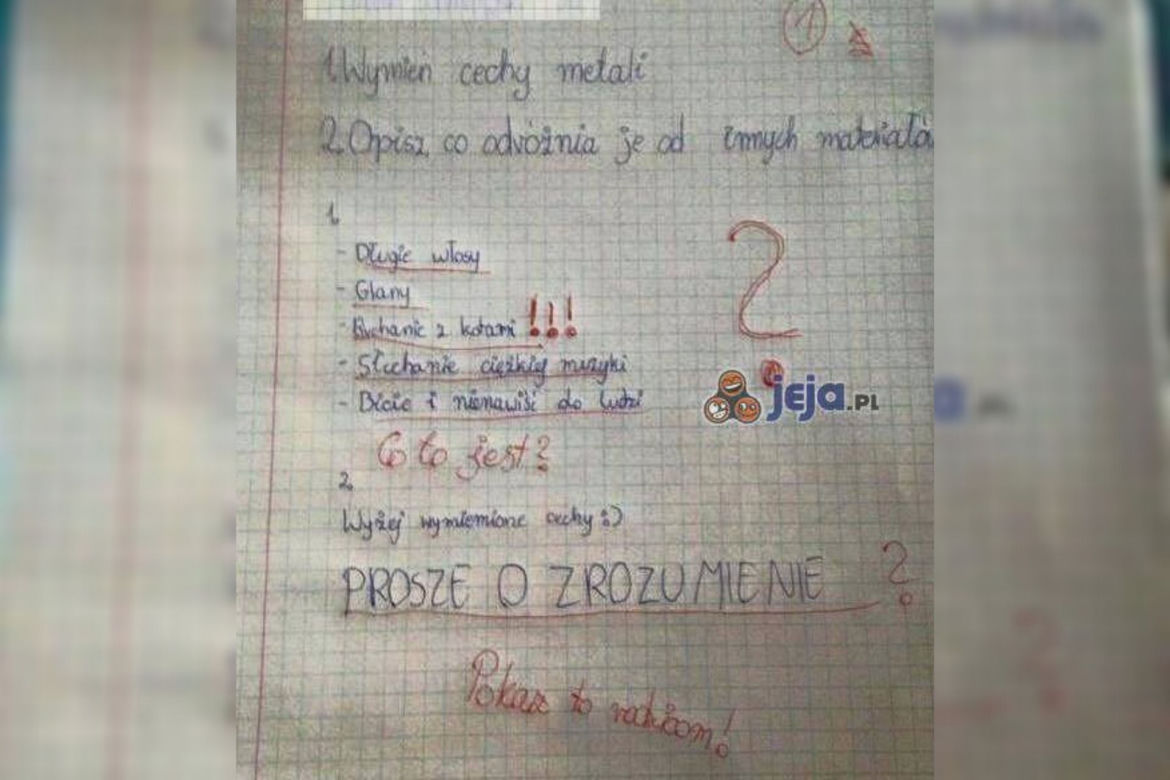 1
1. Wymień cechy metali
2. Opisz co odróżnia je od innych materiałó
1.
- Długie włosy
- Glany
- Ruchanie z kotami !!!
- Słuchanie ciężkiej muzyki
- Bicie i nienawiść do ludzi
?
jeja.PL
Co to jest?
2.
Wyżej wymienione cechy :)
PROSZE O ZROZUMIENIE ?
Pokaż to rodzicom!